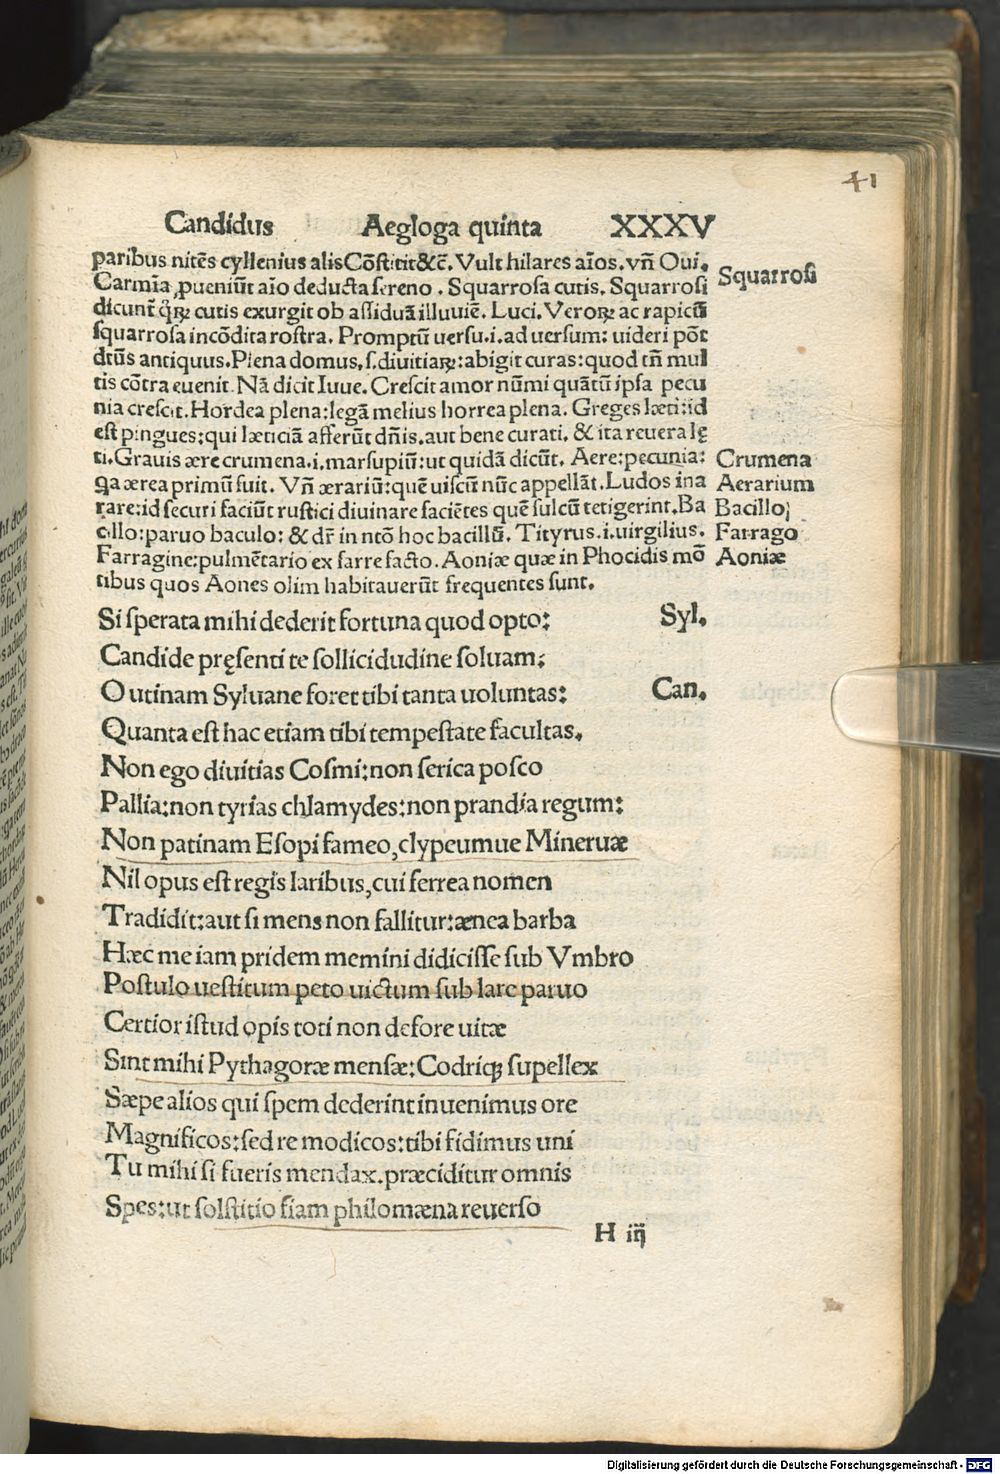 41
Candidus Aegloga quinta XXXV
paribus nitēs cyllenius alis Cōstitit &c̄. Vult hilares aīos. vn̄ Oui.
Carmīa ꝓueniūt aīo deducta sereno. Squarrosa cutis. Squarrosi
Squarrosi
dicunt̄ qr̄ꝝ cutis exurgit ob assiduā illuuiē. Luci. Veroꝝ ac rapicū
squarrosa incōdita rostra. Promptū uersu.i.ad uersum: uideri pōt
dtūs antiquus. Plena domus, s. diuitiaꝝ: abigit curas: quod tn̄ mul
tis cōtra euenit. Nā dicit Iuue. Crescit amor nūmi quātū ipsa pecu
nia crescit. Hordea plena: legā melius horrea plena. Greges læti: id
est pingues: qui læticiā afferūt dn̄is. aut bene curati. & ita reuera lę
ti. Grauis ære crumena. i. marsupiū: ut quidā dicūt. Aere: pecunia:
Crumena
ga ærea primū fuit. Vn̄ ærariū: quē uiscū nūc appellāt. Ludos ina
Aerarium
rare: id securi faciūt rustici diuinare faciētes quē sulcū tetigerint. Ba
Bacillo
cillo: paruo baculo: & dr̄ in ntō hoc bacillū. Tityrus. i. uirgilius.
Farrago
Farragine: pulmētario ex farre facto. Aoniæ quæ in Phocidis mō
Aoniæ
tibus quos Aones olim habitauerūt frequentes sunt.
Si sperata mihi dederit fortuna quod opto: Syl.
Candide pręsenti te sollicidudine soluam;
O utinam Syluane foret tibi tanta uoluntas: Can.
Quanta est hac etiam tibi tempestate facultas.
Non ego diuitias Cosmi: non serica posco
Pallia: non tyrias chlamydes: non prandia regum:
Non patinam Esopi fameo, clypeumue Mineruæ
Nil opus est regis laribus, cui ferrea nomen
Tradidit: aut si mens non fallitur: ænea barba
Hæc me iam pridem memini didicisse sub Vmbro
Postulo uestitum peto uictum sub lare paruo
Certior istud opis toti non defore uitæ
Sint mihi Pythagoræ mensæ: Codriqꝫ supellex
Sæpe alios qui spem dederint inuenimus ore
Magnificos: sed re modicos: tibi fidimus uni
Tu mihi si fueris mendax. præciditur omnis
Spes: ut solstitio fiam philomæna reuerso
H iij
Digitalisierung gefördert durch die Deutsche Forschungsgemeinschaft - DFG